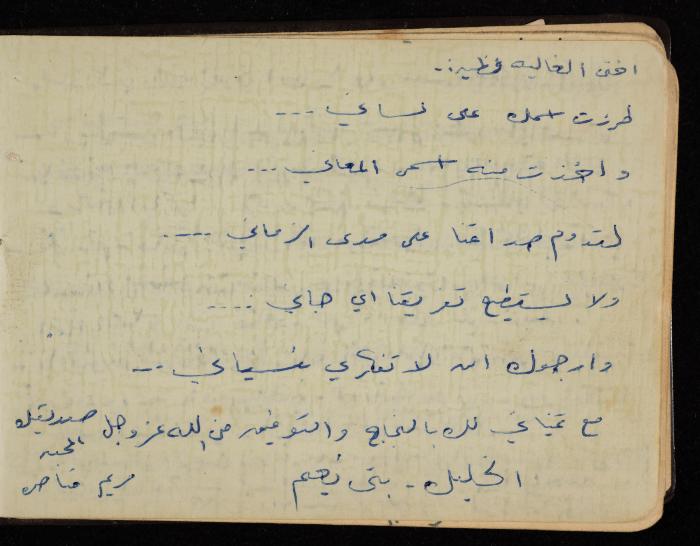 اختي الغاليه عظيمه..
طرزت اسمك على لساني ...
واخذت منه اسمى المعاني ...
لتدوم صداقتنا على مدى الزماني ....
ولا يستطيع تفريقنا اي جاني ....
وارجوك ان لا تفكري بنسياني ...
مع تمنياتي لك بالنجاح والتوفيق من الله عز وجل صديقتك
المحبه
الخليل - بني نعيم
مريم مناصره